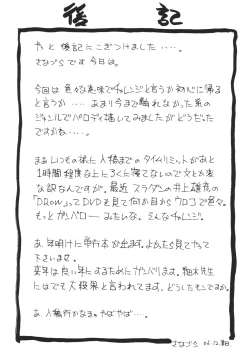 後記
やっと後記にこぎつけました・・・・。
さなづらです今日は。
今回は色々な意味でチャレンジと言うか初心に帰る
と言うか・・・・ あまり今まで触れなかった系の
ジャンルでパロディ描いてみましたがどうだった
ですかね・・・・。
まあいつもの様に入稿までのタイムリミットがあと
1時間程度な上にろくに寝てないので文とか変
な訳なんですが。最近スラダンの井上雄彦の
「DRaw」ってDVDを見て何か目からウロコで色々。
もっとガンバローみたいな。そんなチャレンジ。
あ、年明けに単行本が出ます。よかたら見てやって
下さいませ。
来年は良い年にするためにガンバリます。
先生
にはでも大殺界と言われてます。どうしたモンですかね。
あ、入稿行かなきゃやばやば・・・。
さなづら